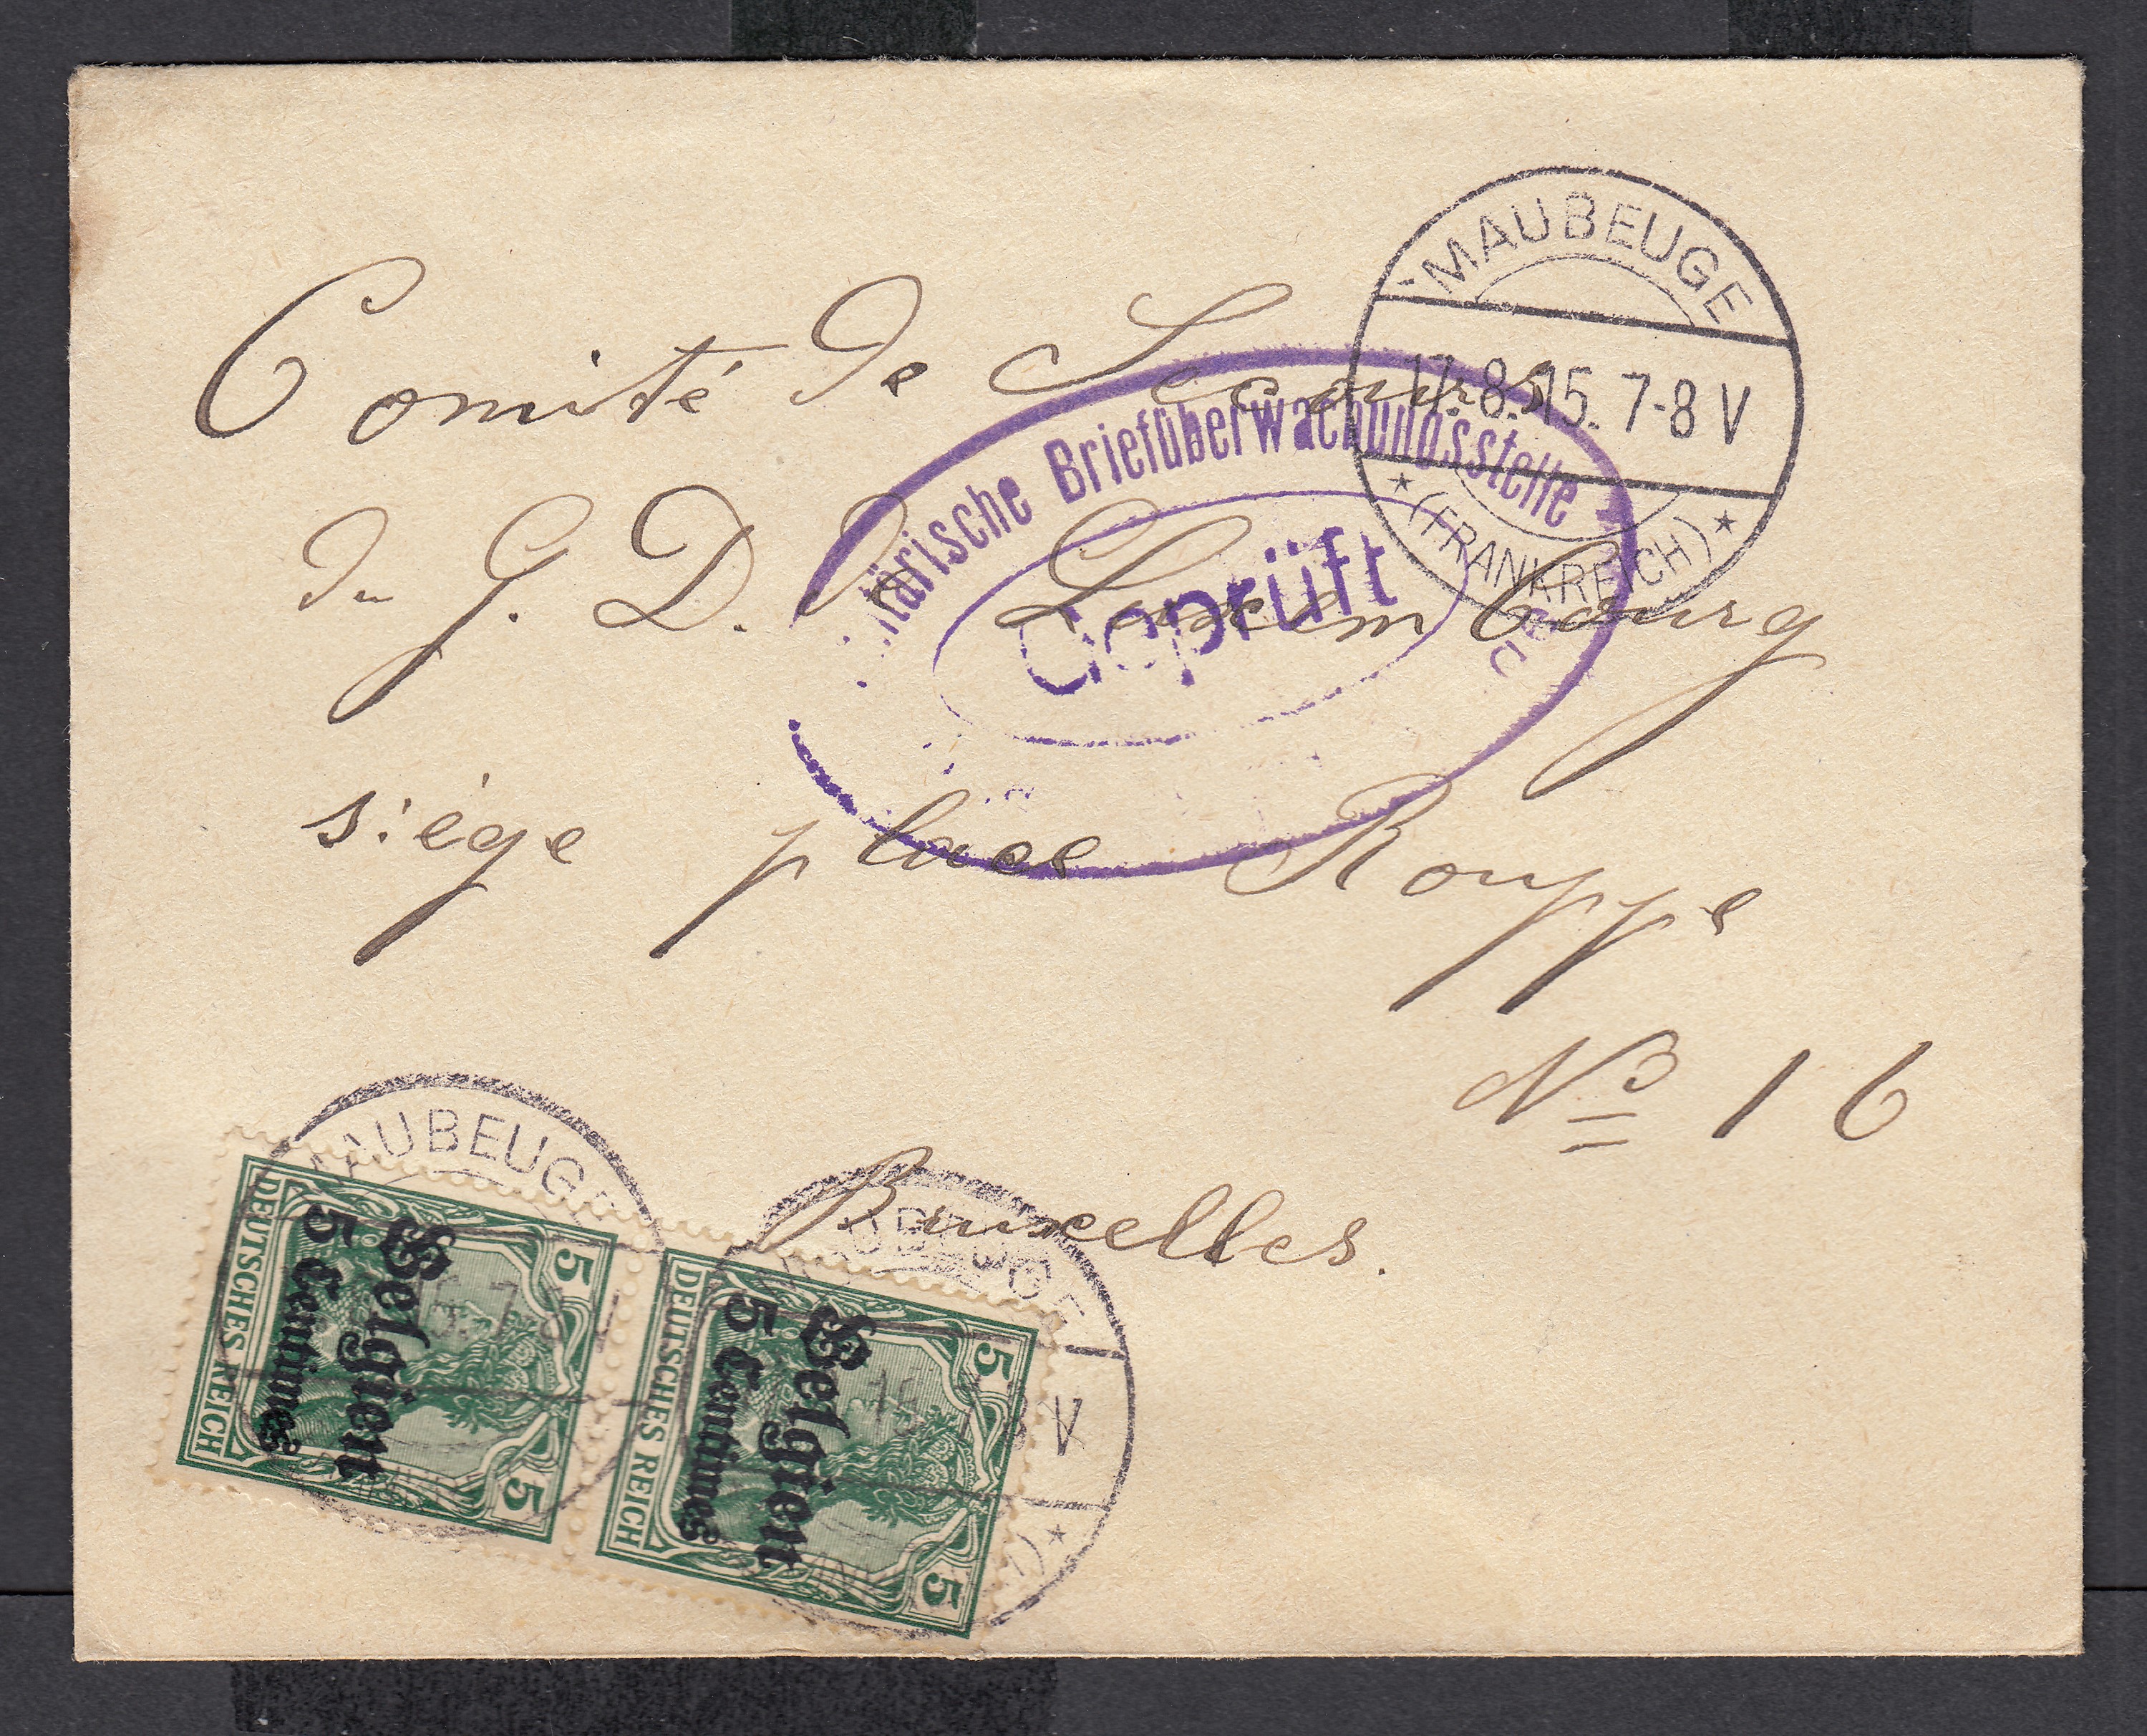 MAUBEUGE
17.8.15. 7-8 V
★ (FRANKREICH) ★
Comité de Secours
du G. D. de Luxembourg
siège place Rouppe
No 16
Bruxelles.
Militärische Briefüberwachungsstelle
Geprüft
MAUBEUGE
7-8 V
DEUTSCHES REICH
5 5
Belgien
5 Centimes
MAUBEUGE
15. 7-8 V
DEUTSCHES REICH
5 5
Belgien
5 Centimes